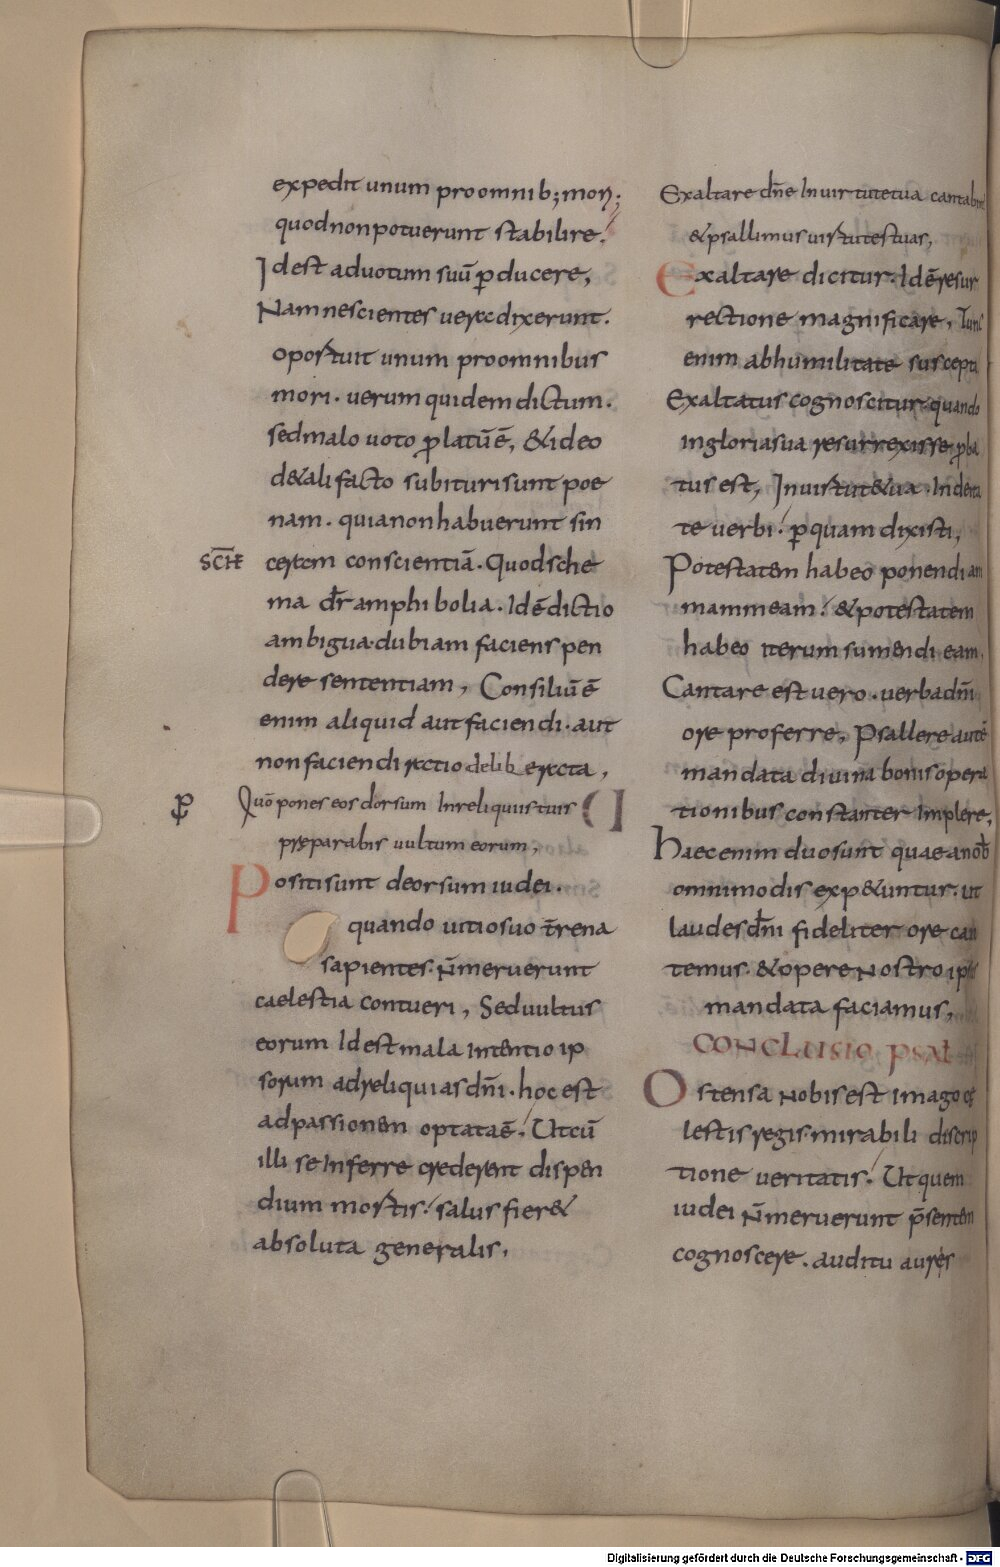 expedit unum proomnib; mori;
quodnonpotuerunt stabilire.
Idest aduotum suū ꝓducere,
Nam nescientes uere dixerunt.
oportuit unum proomnibus
mori. uerum quidem dictum.
sed malo uoto ꝓlatū ē, & ideo
d& ali facto subituri sunt poe
nam. quia non habuerunt sin
SCH̄ ceram conscientiā. Quod sche
ma dr̄ amphibolia. Id ē dictio
ambigua dubiam faciens pen
dere sententiam, Consiliū ē
enim aliquid aut faciendi. aut
non faciendi rectio deliberecta,
Quō pones eos dorsum In reliquiis tuis
preparabis uultum eorum,
Positi sunt deorsum iudei.
quando uitio suo t̄rena
sapientes. n̄ meruerunt
caelestia contueri, Sed uultus
eorum Idest mala Intentio ip
sorum ad reliquias dn̄i. hoc est
ad passionem optata ē. Ut cū
illi se Inferre crederent dispen
dium mortis. salus fier&
absoluta generalis,
Exaltare dn̄e In uirtute tua
& psallimus uirtutes tuas,
Exaltare dicitur. Id ē resur
rectione magnificare, Tunc
enim ab humilitate suscepta
Exaltatus cognoscitur. quando
in gloria sua resurrexisse ꝓba
tus est, In uirtut& ua. In
te uerbi. ꝑ quam dixisti,
Potestatem habeo ponendi an
mam meam. & potestatem
habeo iterum sumendi eam.
Cantare est uero. uerba dn̄i
ore proferre, Psallere autē
mandata diuina bonis opera
tionibus constanter Implere,
haec enim duo sunt quae a nob
omnimodis exp&untur. ut
laudes dn̄i fideliter ore can
temus. & opere nostro ipsius
mandata faciamus,
CONCLUSIO PSAL
Ostensa nobis est imago ce
lestis regis. mirabili discrip
tione ueritatis. Ut quem
iudei n̄ meruerunt p̄sentem
cognoscere. auditu aures